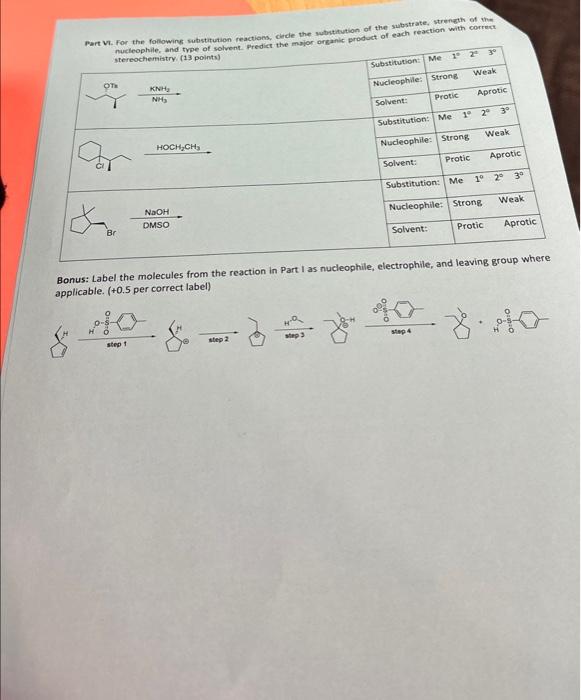 Part VI. For the following substitution reactions, circle the substitution of the substrate, strength of the
nucleophile, and type of solvent. Predict the major organic product of each reaction with correct
stereochemistry. (13 points)
OTs
KNH₂
NH₃
Substitution: Me 1° 2° 3°
Nucleophile: Strong Weak
Solvent: Protic Aprotic
Cl
HOCH₂CH₃
Substitution: Me 1° 2° 3°
Nucleophile: Strong Weak
Solvent: Protic Aprotic
Br
NaOH
DMSO
Substitution: Me 1° 2° 3°
Nucleophile: Strong Weak
Solvent: Protic Aprotic
Bonus: Label the molecules from the reaction in Part I as nucleophile, electrophile, and leaving group where
applicable. (+0.5 per correct label)
step 1
step 2
step 3
step 4